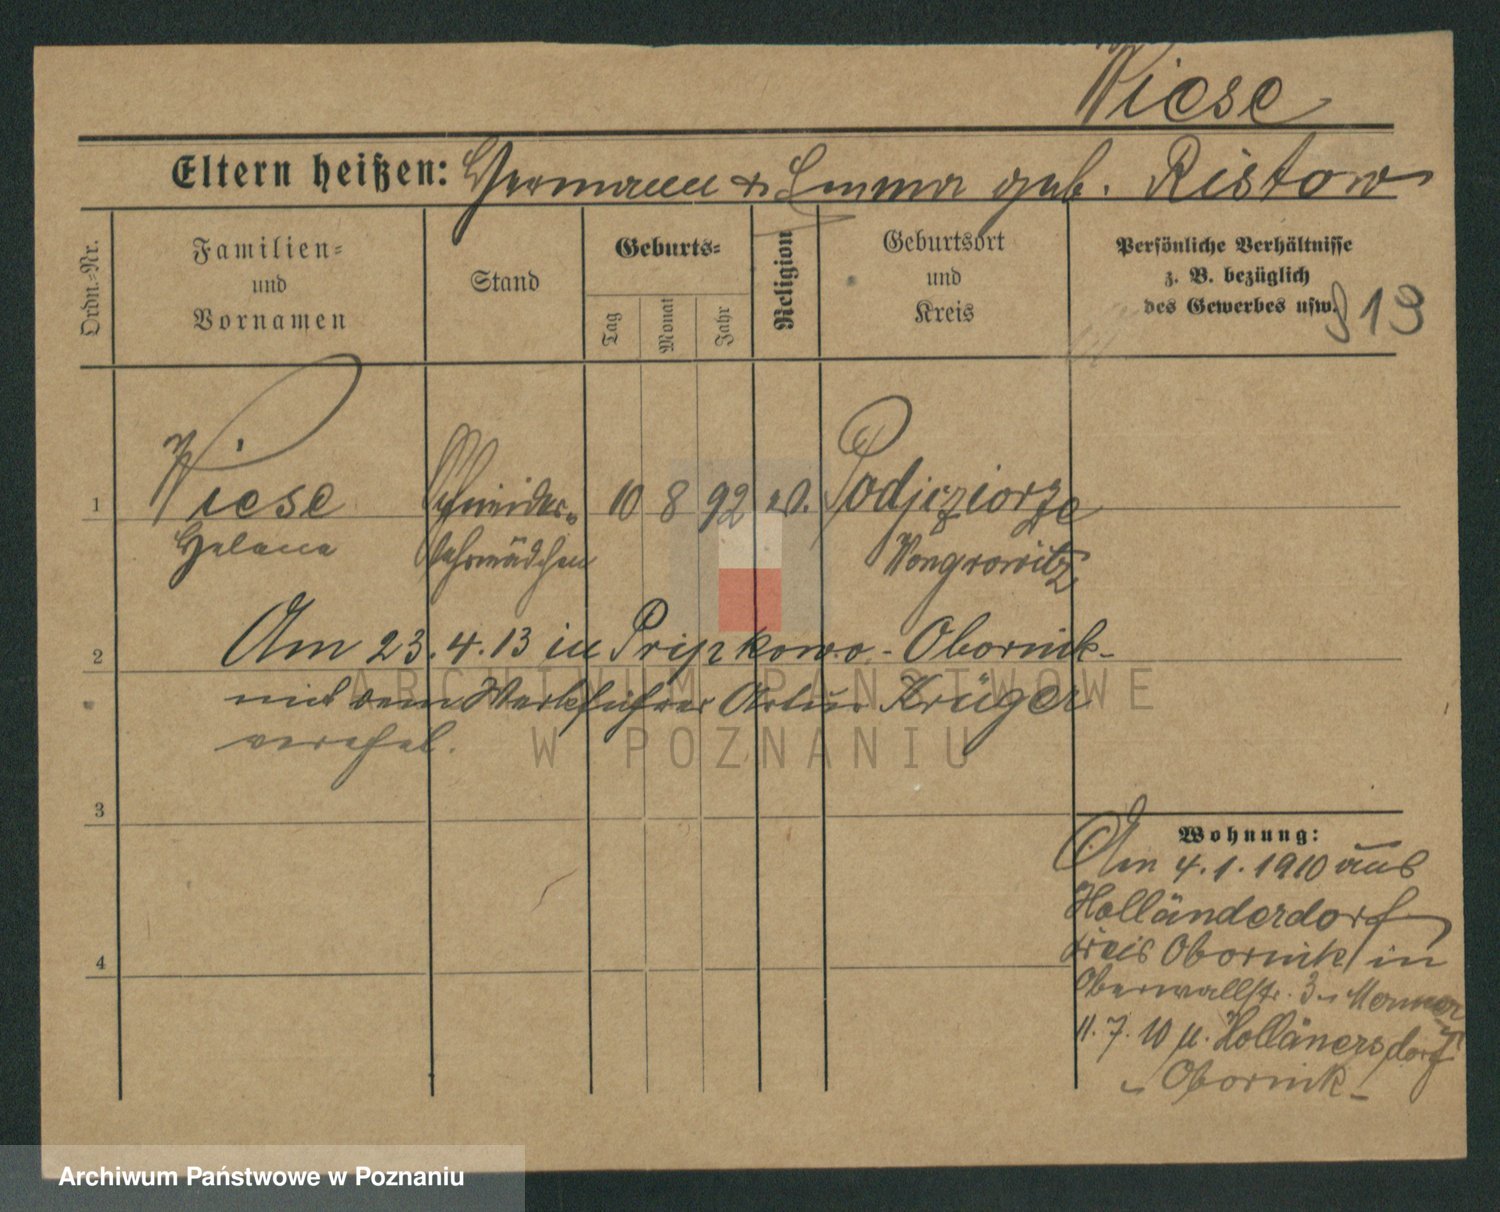 Wiese
Eltern heißen: Hermann & Emma geb. Ristow
Ordn.-Nr.
Familien-
und
Vornamen
Stand
Geburts-
Tag
Monat
Jahr
Religion
Geburtsort
und
Kreis
Persönliche Verhältnisse
z. B. bezüglich
des Gewerbes usw.
819
1 Wiese Schneider- 10 8 92 ev. Podjeziorze
Helene lehrmädchen Wongrowitz
2 Am 23.4.13 in Pripkowo - Obornik-
mit dem Werkführer Artur Krüger
verehel.
3
4
Wohnung:
Am 4.1.1910 aus
Holländerdorf
Kreis Obornik in
Oberwallstr. 3
11.7.10 n. Holländersdorf
Obornik-
ARCHIWUM PAŃSTWOWE
W POZNANIU
Archiwum Państwowe w Poznaniu